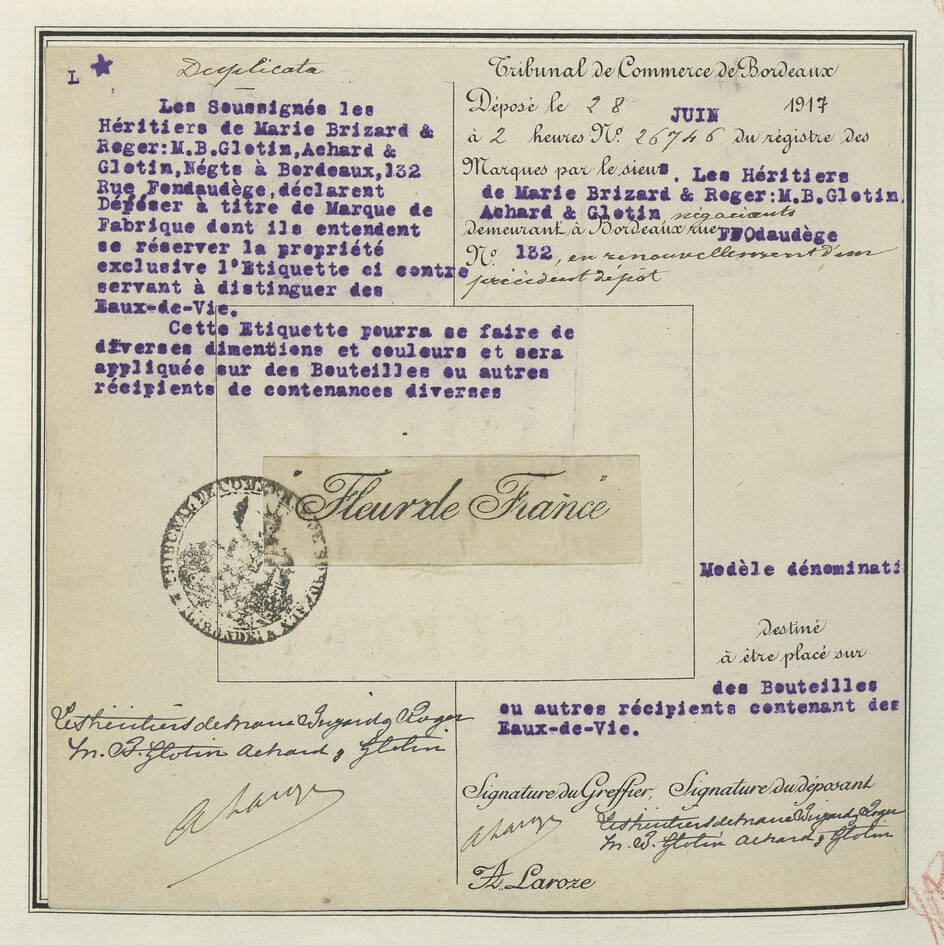 L
Duplicata
Les Soussignés les
Héritiers de Marie Brizard &
Roger:M.B.Glotin,Achard &
Glotin,Négts à Bordeaux,132
Rue Fondaudège,déclarent
Déposer à titre de Marque de
Fabrique dont ils entendent
se réserver la propriété
exclusive l'Etiquette ci contre
servant à distinguer des
Eaux-de-Vie.
Cette Etiquette pourra se faire de
diverses dimentions et couleurs et sera
appliquée sur des Bouteilles ou autres
récipients de contenances diverses
Tribunal de Commerce de Bordeaux
Déposé le 28 JUIN 1917
à 2 heures Nº 26746 du régistre des
Marques par le sieurs. Les Héritiers
de Marie Brizard & Roger:M.B.Glotin,
Achard & Glotin négociants
demeurant à Bordeaux rue FFOdaudège
Nº 132, en renouvellement d'un
précédent dépôt
"Fleur de France"
TRIBUNAL DE COMMERCE DE BORDEAUX
GIRONDE
Modèle dénominati
Destiné
à être placé sur
des Bouteilles
ou autres récipients contenant des
Eaux-de-Vie.
Les héritiers de Marie Brizard & Roger
M. B. Glotin Achard & Glotin
A Laroze
Signature du Greffier, Signature du déposant
A Laroze
Les héritiers de Marie Brizard & Roger
M. B. Glotin Achard & Glotin
A. Laroze